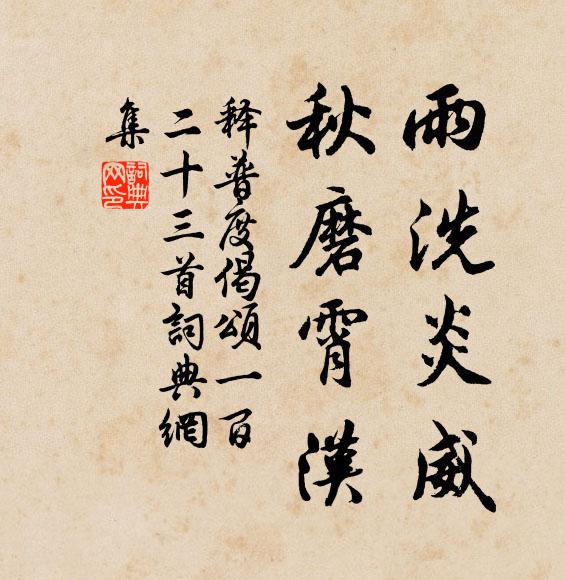 雨洗炎威
秋磨霄漢
释普度偈頌一百
二十三首詞典網
集
詞典
网印